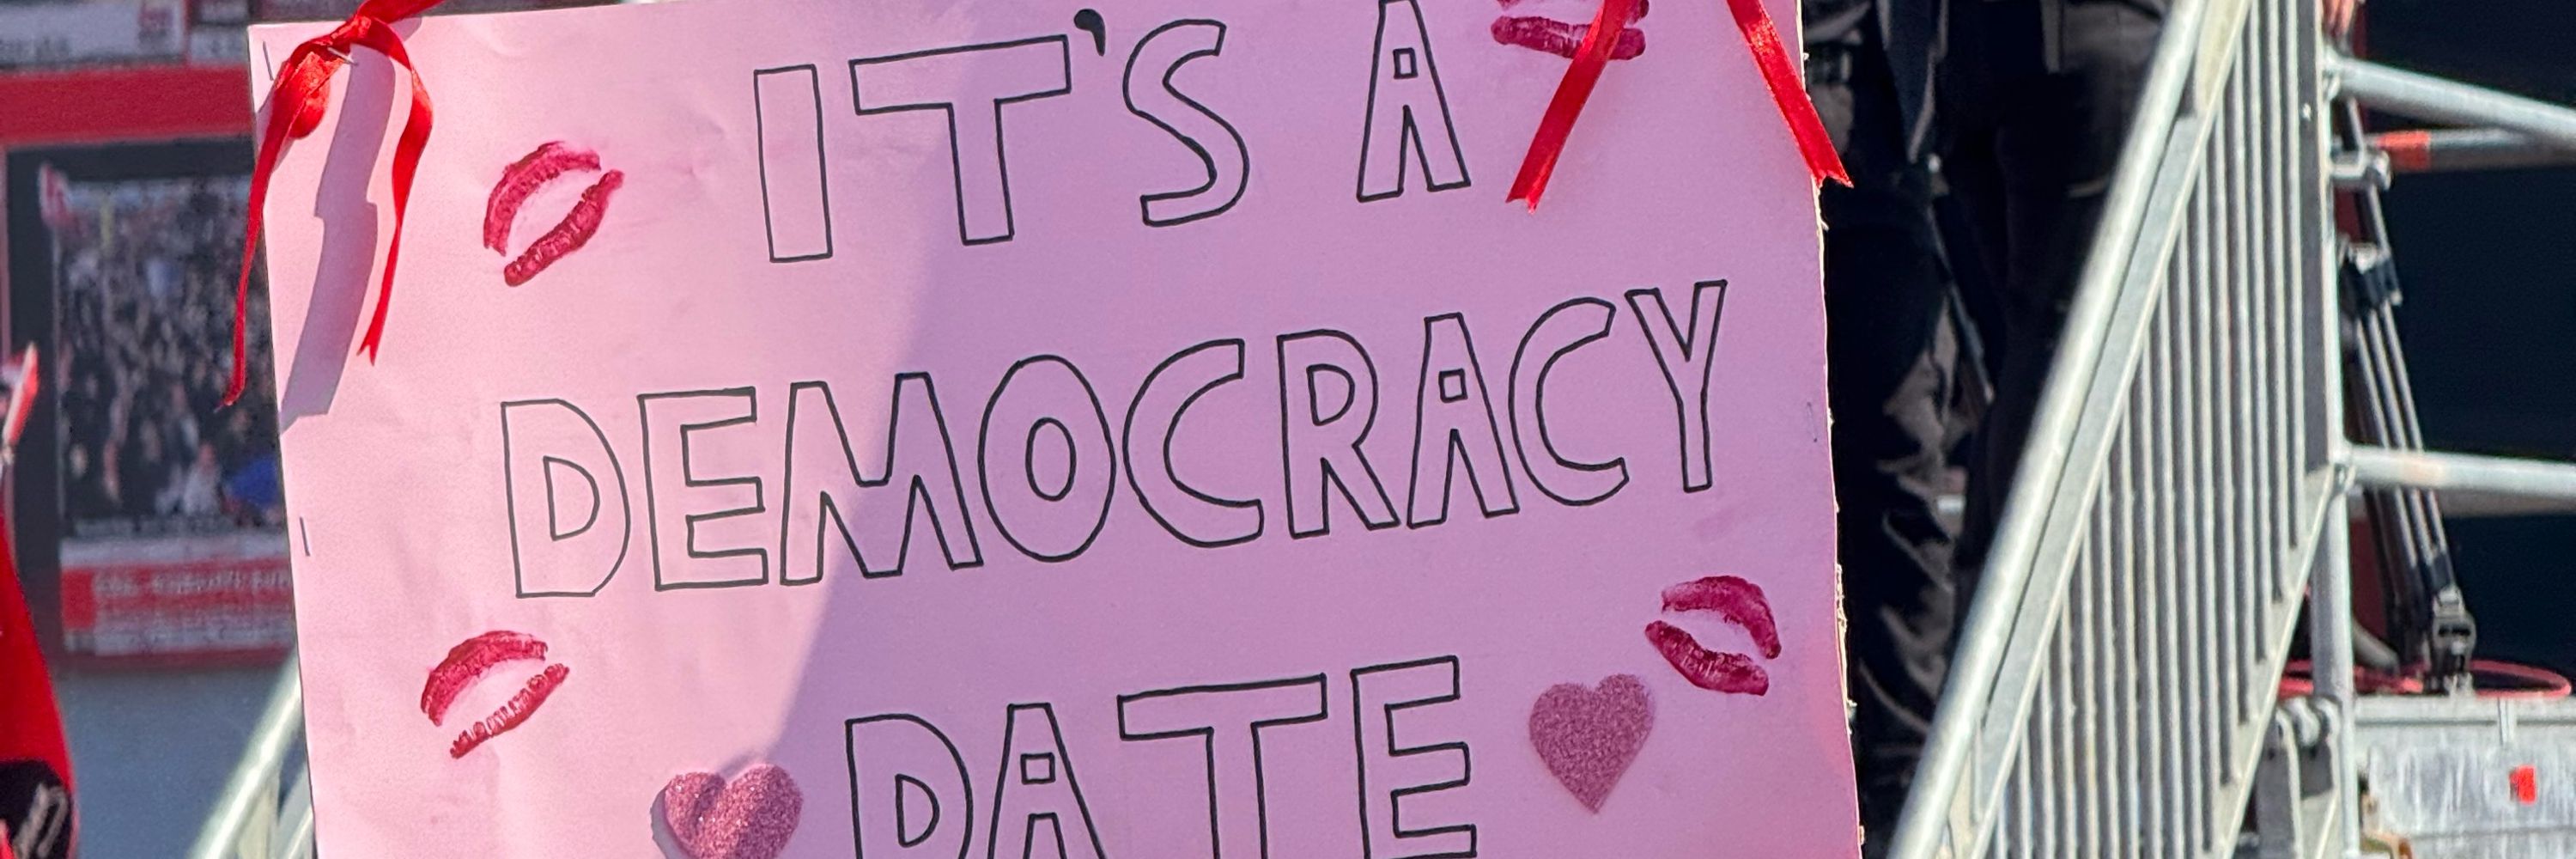 IT'S A
DEMOCRACY
DATE